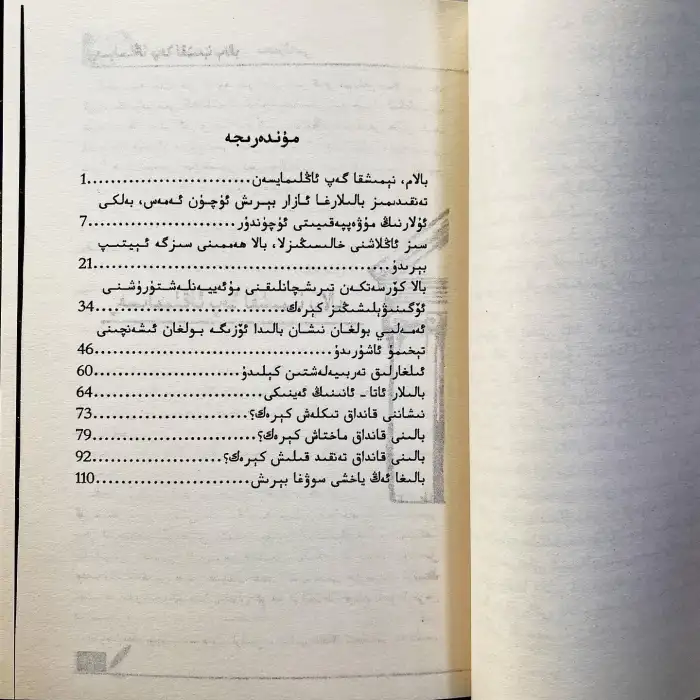 مۇندەرىجە
بالام، نېمىشقا گەپ ئاڭلىمايسەن..................1
تەنقىدىمىز بالىلارغا ئازار بېرىش ئۈچۈن ئەمەس، بەلكى
ئۇلارنىڭ مۇۋەپپەقىيىتى ئۈچۈندۇر..................7
سىز ئاڭلاشنى خالىسىڭىزلا، بالا ھەممىنى سىزگە ئېيتىپ
بېرىدۇ..........................................21
بالا كۆرسەتكەن تىرىشچانلىقنى مۇئەييەنلەشتۈرۈشنى
ئۆگىنىۋېلىشىڭىز كېرەك..........................34
ئەمەلىي بولغان نىشان بالىدا ئۆزىگە بولغان ئىشەنچىنى
تېخىمۇ ئاشۇرىدۇ................................46
ئىلغارلىق تەربىيەلەشتىن كېلىدۇ..................60
بالىلار ئاتا- ئانىنىڭ ئەينىكى....................64
نىشاننى قانداق تىكلەش كېرەك؟..................73
بالىنى قانداق ماختاش كېرەك؟..................79
بالىنى قانداق تەنقىد قىلىش كېرەك؟..............92
بالىغا ئەڭ ياخشى سوۋغا بېرىش..................110